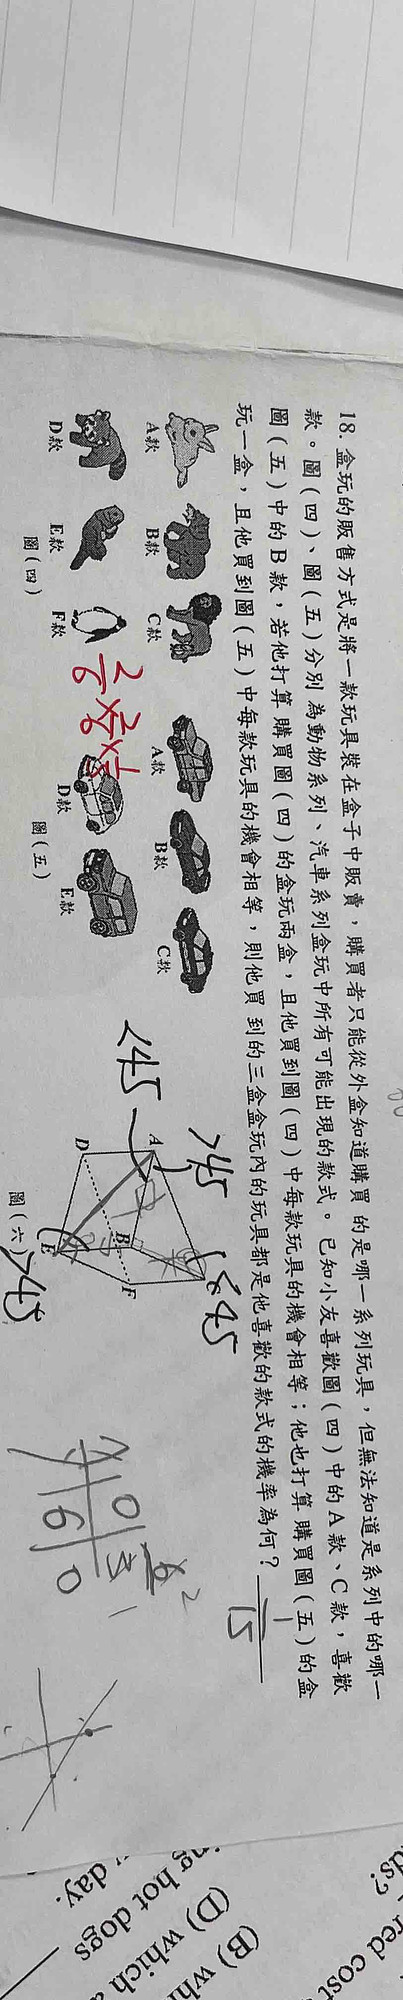 18. 盒玩的販售方式是將一款玩具裝在盒子中販賣，購買者只能從外盒知道購買的是哪一系列玩具，但無法知道是系列中的哪一
款。圖(四)、圖(五)分別為動物系列、汽車系列盒玩中所有可能出現的款式。已知小友喜歡圖(四)中的A款、C款，喜歡
圖(五)中的B款，若他打算購買圖(四)的盒玩兩盒，且他買到圖(四)中每款玩具的機會相等；他也打算購買圖(五)的盒
玩一盒，且他買到圖(五)中每款玩具的機會相等，則他買到的三盒盒玩內的玩具都是他喜歡的款式的機率為何？
1/15
A款 B款 C款 A款 B款 C款
D款 E款 F款 D款 E款
圖(四) 圖(五) 圖(六)
2/6 × 2/6 × 1/5
<45
>45
<45
>45
A
D
B
E
F
x 0
y 6 0
(B) wh
(D) which
ng hot dogs
day.
red cost
ds?